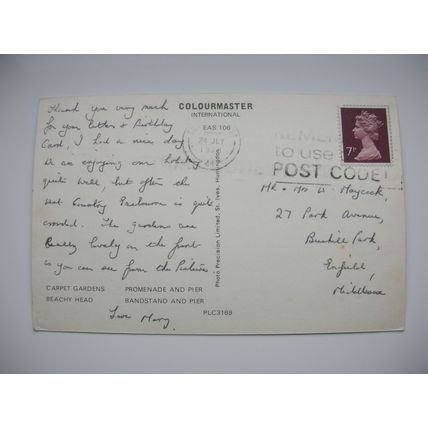 COLOURMASTER
INTERNATIONAL
EAS 106
Thank you very much
for your letter & Birthday
Card, I had a nice day
We are enjoying our holiday
quite well, but often the
is quite
crowded. The gardens are
lovely on the front
as you can see from the Pictures.
CARPET GARDENS PROMENADE AND PIER
BEACHY HEAD BANDSTAND AND PIER
Love Mary.
PLC3169
Photo Precision Limited, St. Ives, Huntingdon
24 JLY
to use
POST CODE
7P
Mr & Mrs W. Maycock,
27 Park Avenue,
Bushhill Park,
Enfield,
Middlesex